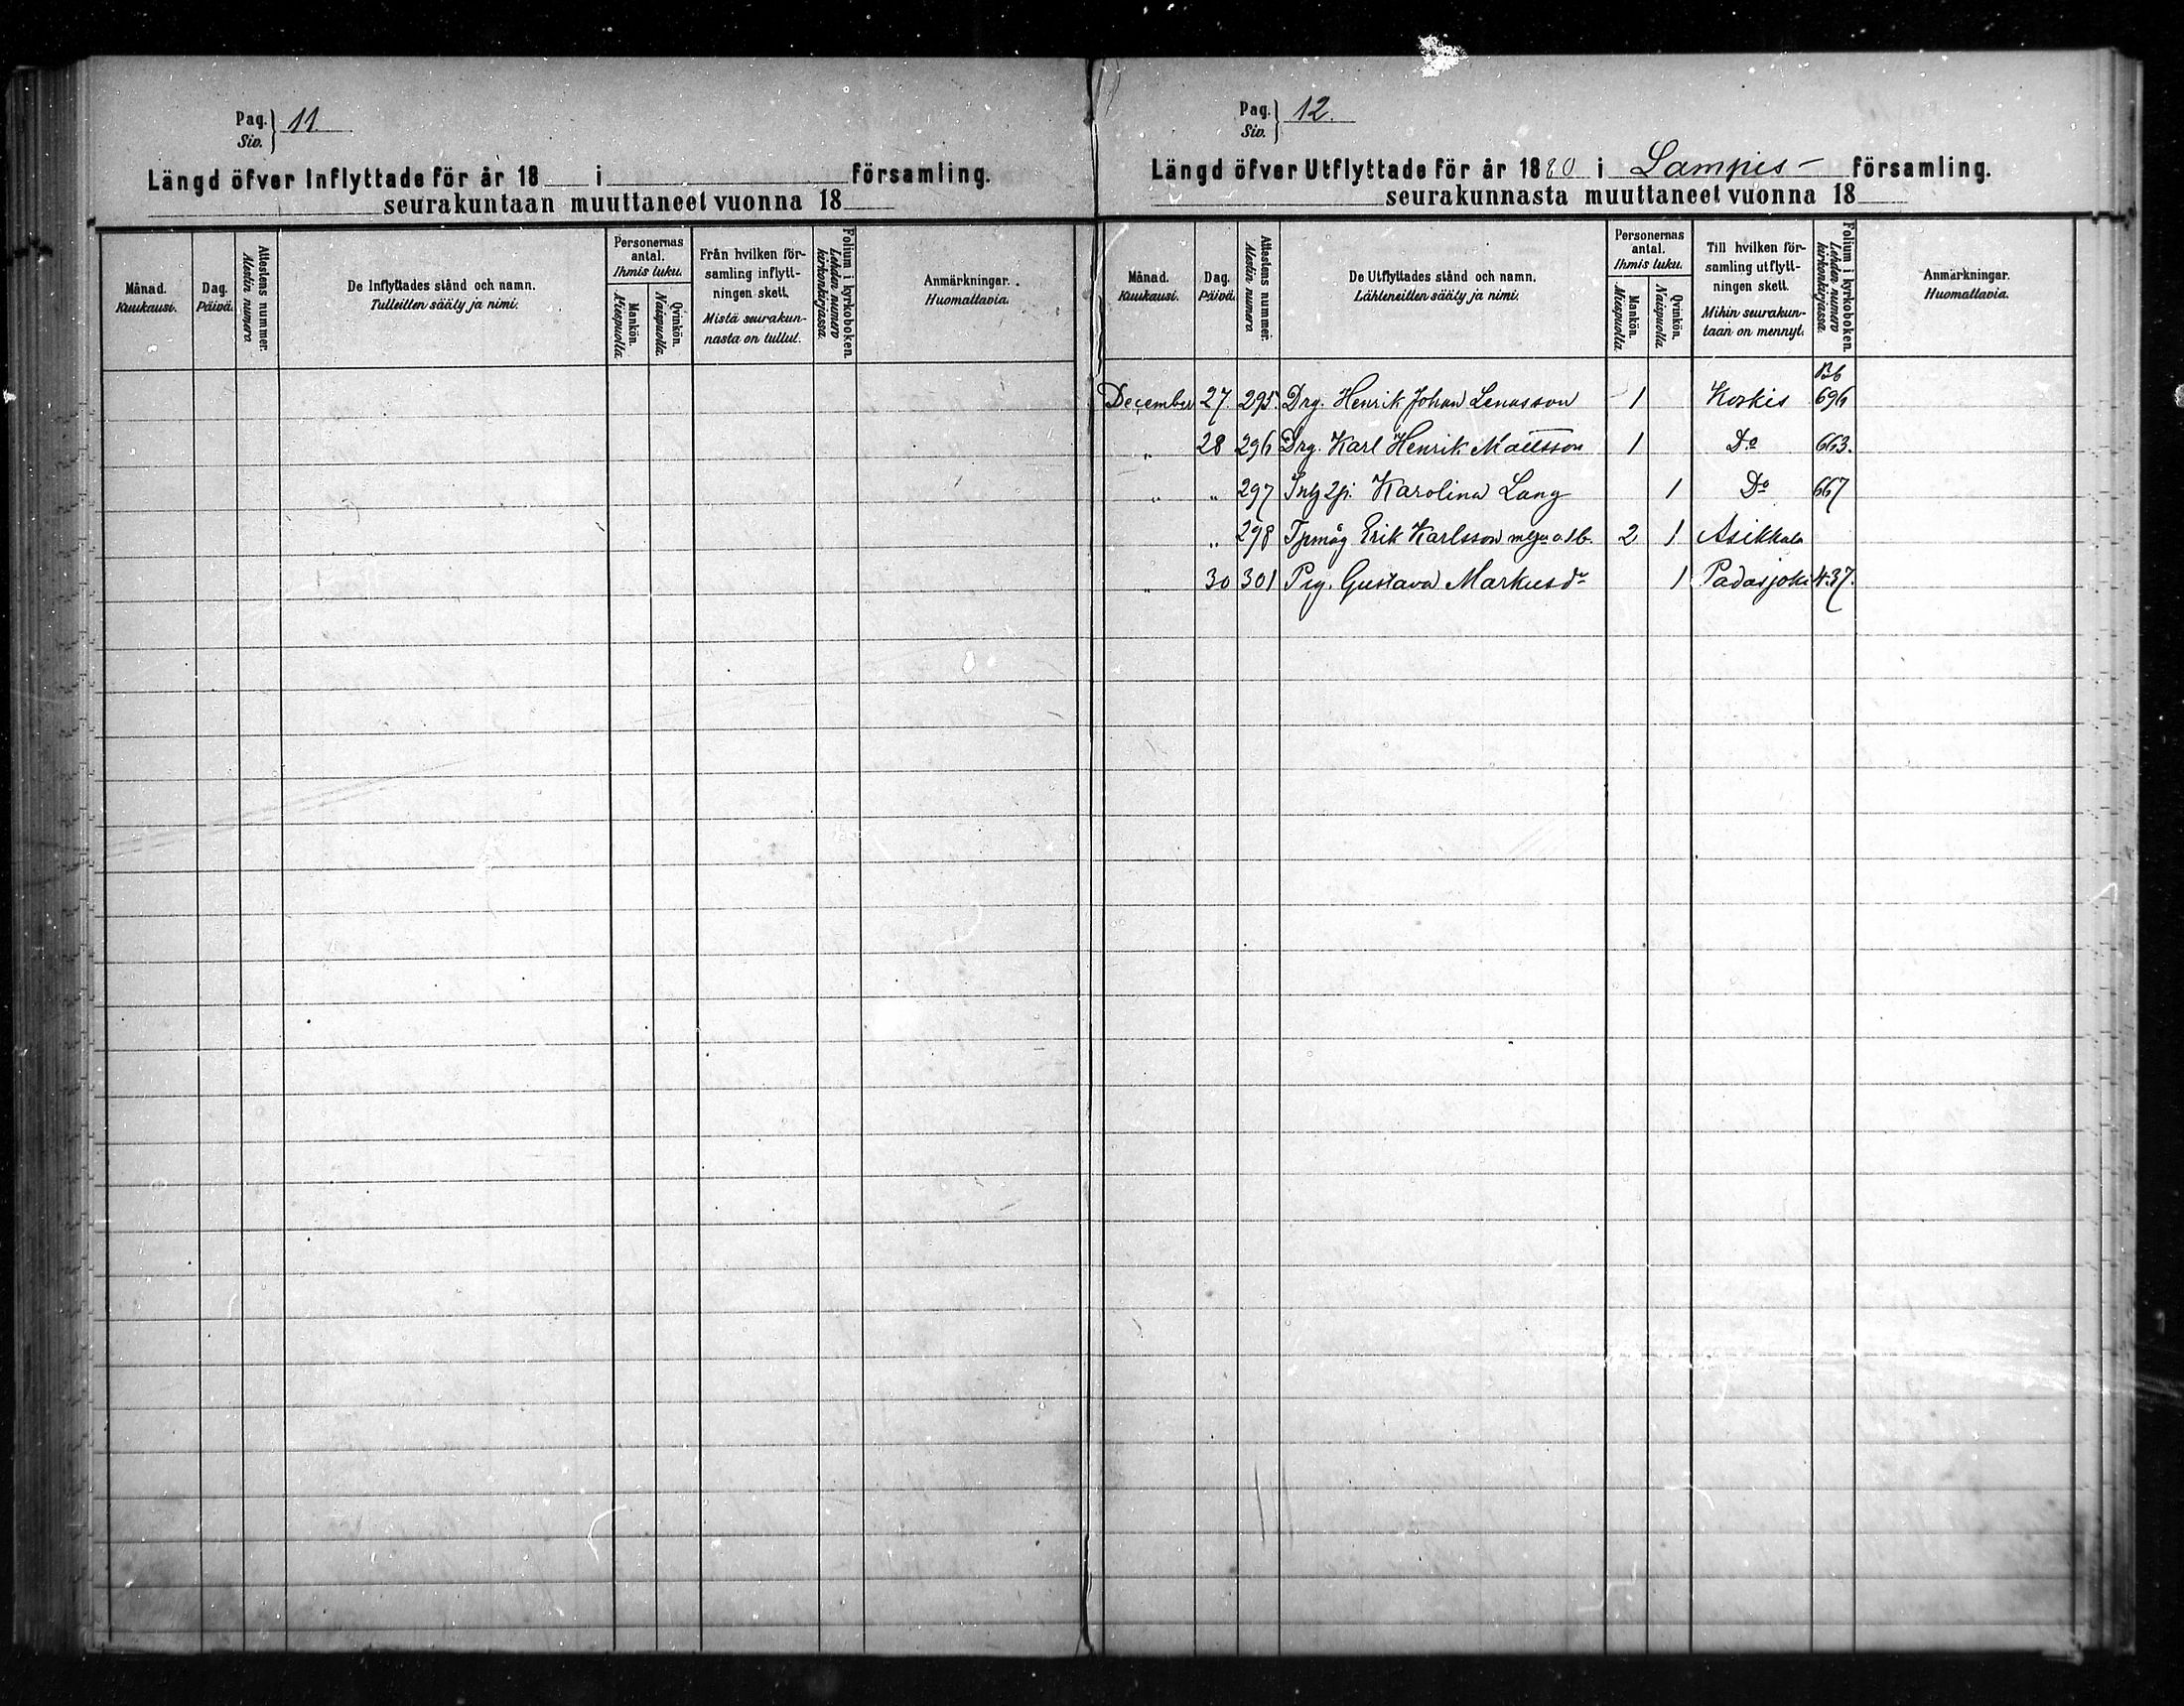 Pag. Siv. } 11.
Längd öfver Inflyttade för år 18 i församling.
seurakuntaan muuttaneet vuonna 18
Månad. Kuukausi.
Dag. Päivä.
Attestens nummer. Atestin numero
De Inflyttades stånd och namn. Tulleitten sääty ja nimi.
Personernas antal. Ihmis luku.
Mankön. Miespuolia
Qvinkön. Naispuolia
Från hvilken församling inflyttningen skett. Mistä seurakunnasta on tullut.
Folium i kyrkoboken. Lehden numero kirkonkirjassa
Anmärkningar. Huomattavia.
Pag. Siv. } 12.
Längd öfver Utflyttade för år 1880 i Lampis- församling.
seurakunnasta muuttaneet vuonna 18
Månad. Kuukausi.
Dag. Päivä.
Attestens nummer. Atestin numero
De Utflyttades stånd och namn. Lähteneitten sääty ja nimi.
Personernas antal. Ihmis luku.
Mankön. Miespuolia
Qvinkön. Naispuolia
Till hvilken församling utflyttningen skett. Mihin seurakuntaan on mennyt.
Folium i kyrkoboken. Lehden numero kirkonkirjassa
Anmärkningar. Huomattavia.
December 27. 295. Drg. Henrik Johan Lenasson 1 Koskis 696
„ 28 296 Drg. Karl Henrik Mattsson 1 Do 663.
„ „ 297 Karolina Lang 1 Do 667
„ 298 Erik Karlsson 2 1 Asikkala
„ 30 301 Pig. Gustava Markusdr 1 Padasjoki 437.